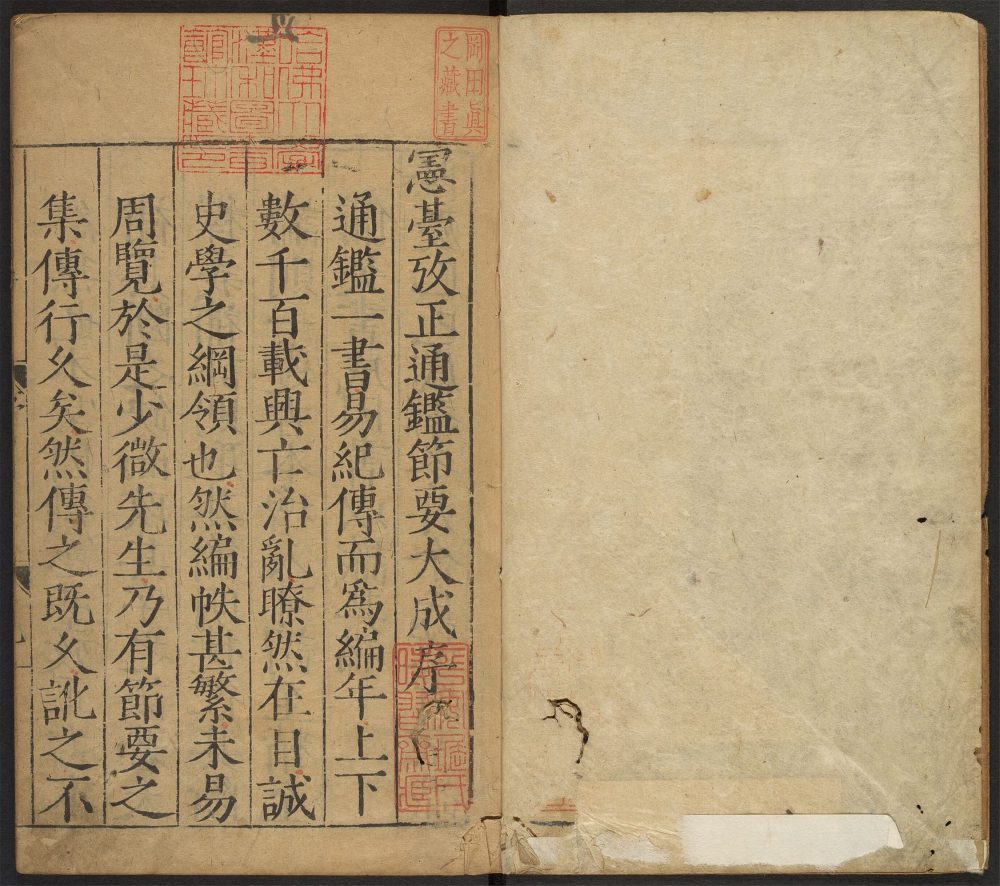 憲臺攷正通鑑節要大成序
通鑑一書易紀傳而爲編年上下
數千百載興亡治亂瞭然在目誠
史學之綱領也然編帙甚繁未易
周覽於是少微先生乃有節要之
集傳行久矣然傳之既久訛之不
岡田眞
之藏書
哈佛大學
漢和圖書
館珍藏印